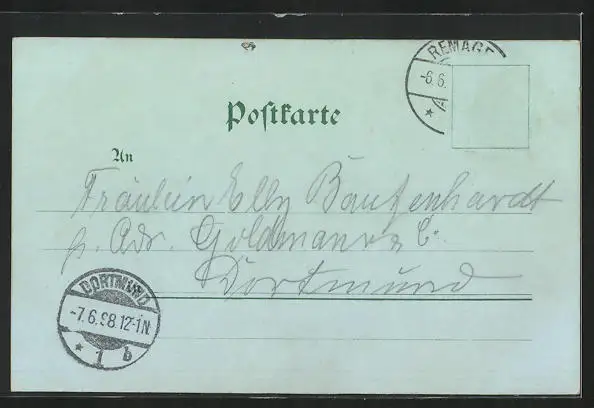 REMAG
-6.6.
Postkarte
An
Fräulein Elly
p. Adr. Goldmann & C.
Dortmund
DORTMUND
-7.6.98.12-1N.
* 1 b